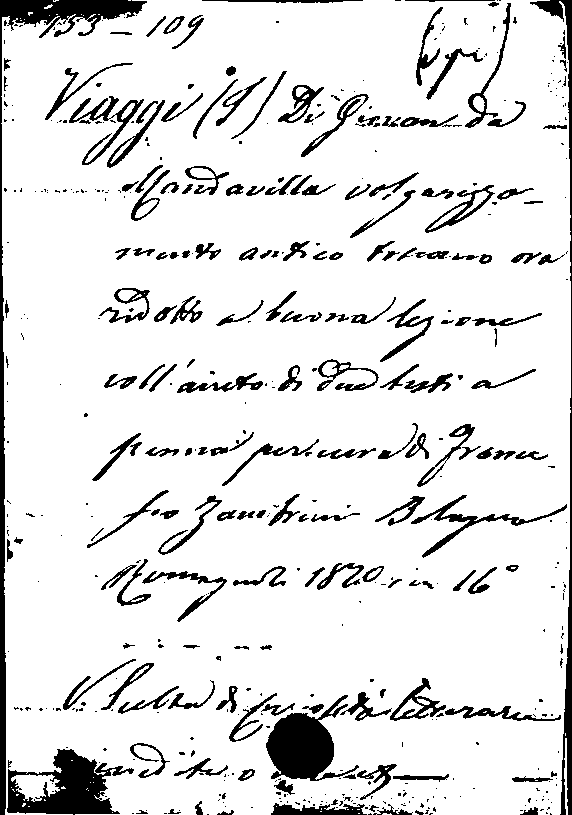 153 - 109
Viaggi (I) Di Giovan da
Mandavilla volgarizza-
mento antico toscano ora
ridotto a buona lezione
coll'aiuto di due testi a
penna per cura di France
sco Zambrini Bologna
Romagnoli 1870 in 16°
V. Scelta di Curiosità letterarie
inedite o